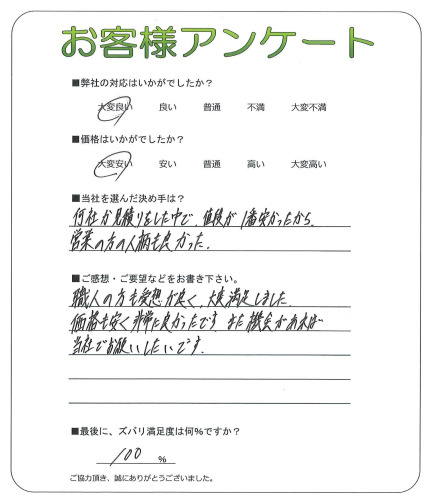 お客様アンケート
■弊社の対応はいかがでしたか？
大変良い 良い 普通 不満 大変不満
■価格はいかがでしたか？
大変安い 安い 普通 高い 大変高い
■当社を選んだ決め手は？
何社か見積りをした中で、値段が1番安かったから.
営業の方の人柄も良かった.
■ご感想・ご要望などをお書き下さい。
職人の方も愛想が良く、大変満足しました.
価格も安く非常に良かったです また機会があれば
当社でお願いしたいです.
■最後に、ズバリ満足度は何％ですか？
100 ％
ご協力頂き、誠にありがとうございました。